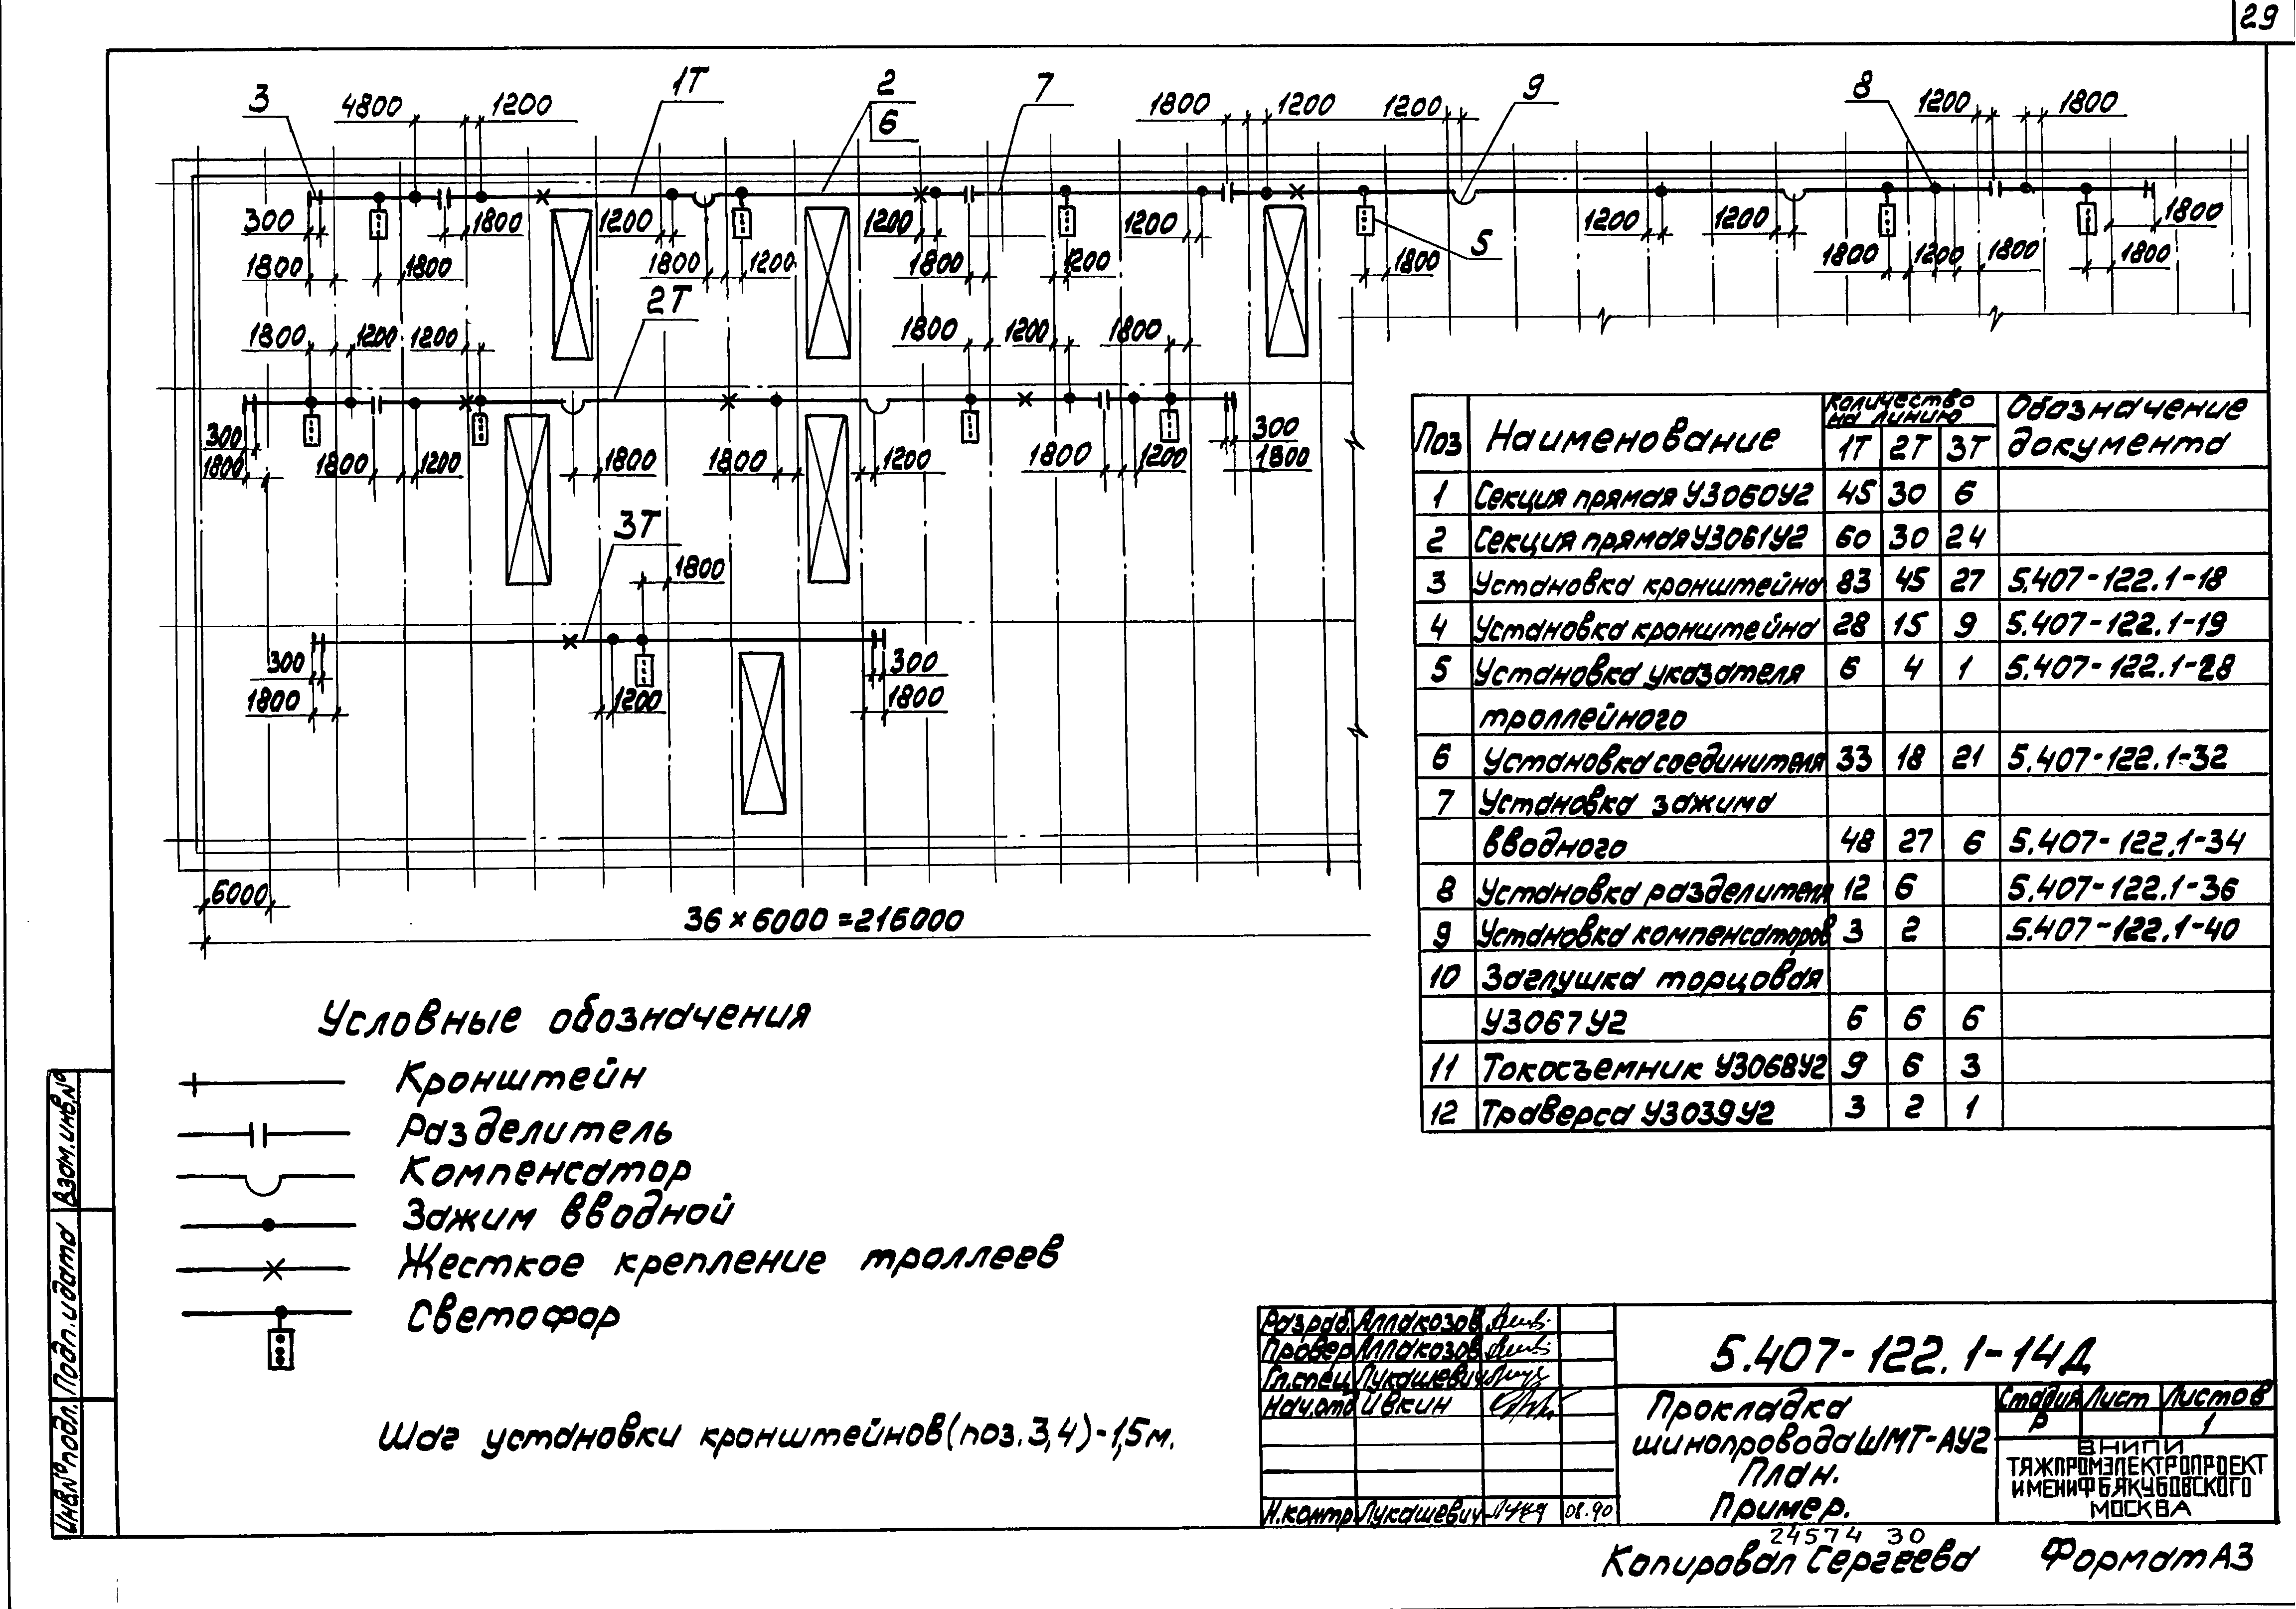 29
3 4800 1200 1Т 2 7 1800 1200 1200 9 8 1200 1800
6
300 1800 1200 1200 1200 5 1200 1200 1800
1800 1800 1800 1200 1800 1200 1800 1800 1200 1800 1800
2Т
1800 1200 1200 1800 1200 1800
300 300
1800 1800 1200 1800 1800 1200 1800 1200 1800
3Т
1800
300 300
1800 1200 1800
6000
36 × 6000 = 216000
Поз Наименование Количество на линию Обозначение документа
1Т 2Т 3Т
1 Секция прямая У3060У2 45 30 6
2 Секция прямая У3061У2 60 30 24
3 Установка кронштейна 83 45 27 5.407-122.1-18
4 Установка кронштейна 28 15 9 5.407-122.1-19
5 Установка указателя 6 4 1 5.407-122.1-28
троллейного
6 Установка соединителя 33 18 21 5.407-122.1-32
7 Установка зажима
вводного 48 27 6 5.407-122.1-34
8 Установка разделителя 12 6 5.407-122.1-36
9 Установка компенсаторов 3 2 5.407-122.1-40
10 Заглушка торцовая
У3067У2 6 6 6
11 Токосъемник У3068У2 9 6 3
12 Траверса У3039У2 3 2 1
Условные обозначения
Кронштейн
Разделитель
Компенсатор
Зажим вводной
Жесткое крепление троллеев
Светофор
Шаг установки кронштейнов (поз. 3, 4) - 1,5 м.
Взам. инв. №
Подп. и дата
Инв. № подл.
Разраб. Аллакозов
Провер Аллакозов
Гл. спец. Лукашевич
Нач. отд Ивкин
Н. контр. Лукашевич 08.90
5.407-122.1-14Д
Прокладка
шинопровода ШМТ-АУ2
План.
Пример.
Стадия Лист Листов
Р 1
ВНИПИ
ТЯЖПРОМЭЛЕКТРОПРОЕКТ
ИМЕНИ Ф.Б.ЯКУБОВСКОГО
МОСКВА
24574 30
Копировал Сергеева Формат А3